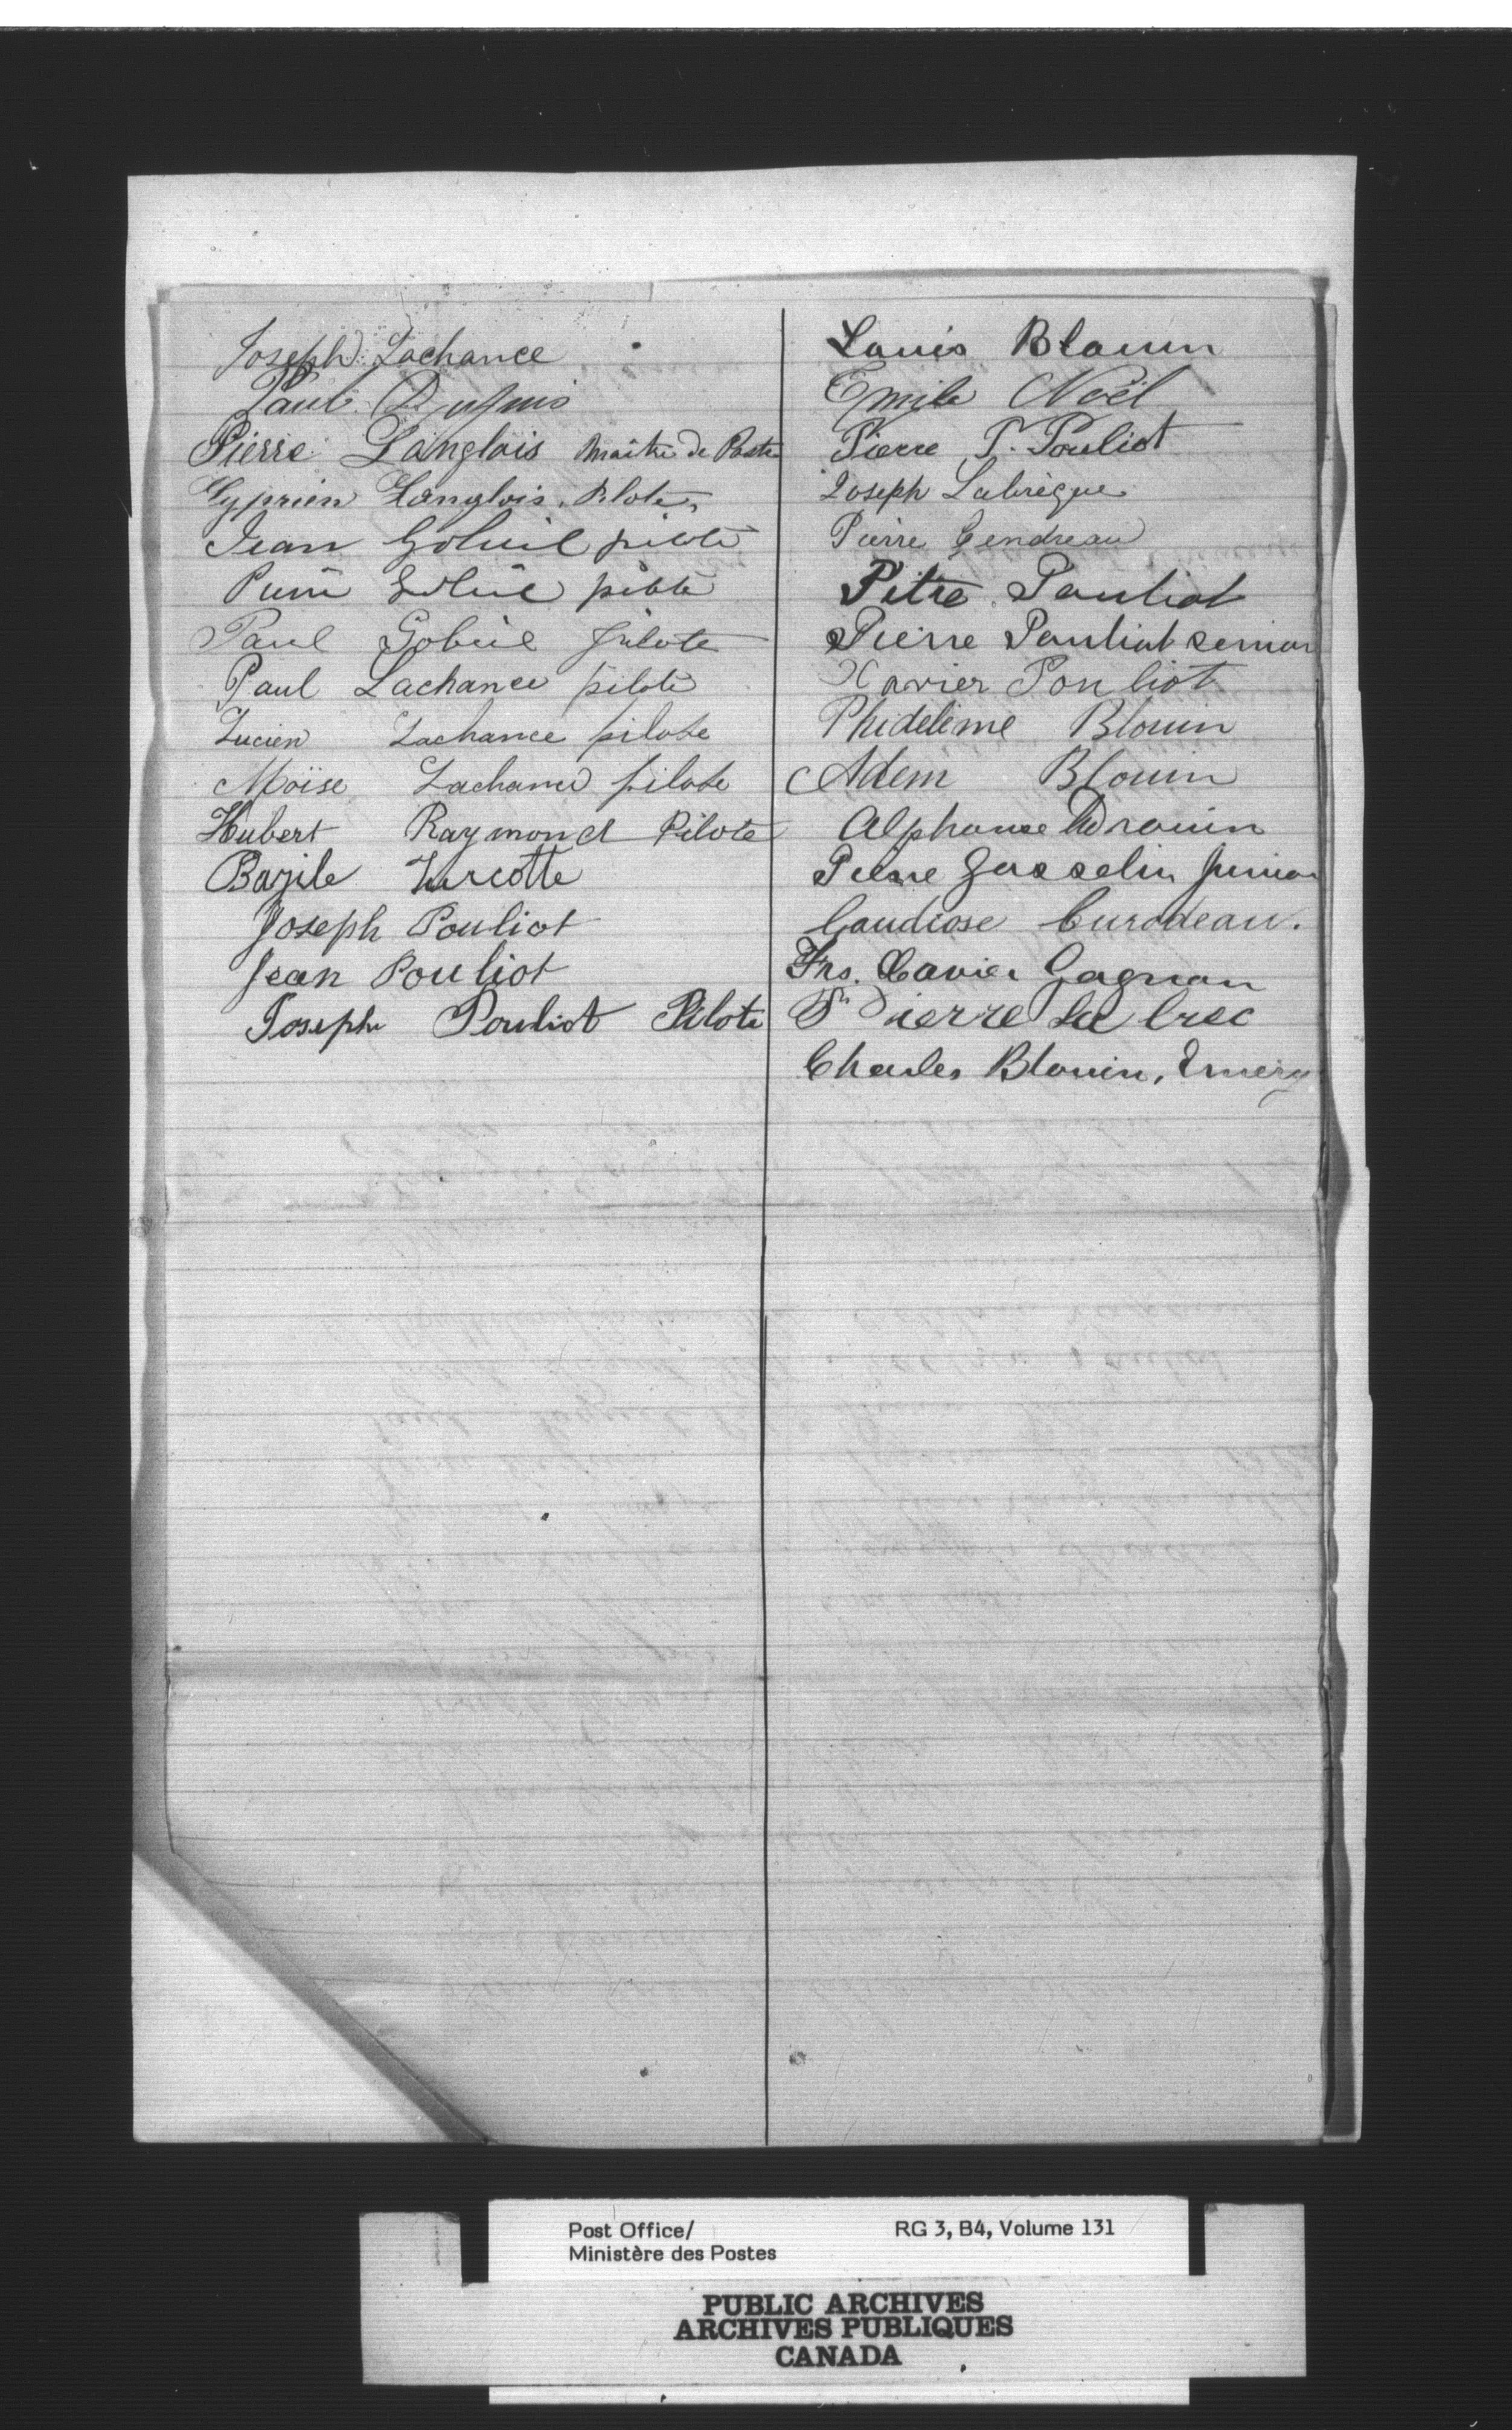 Joseph Lachance
Paul Dupuis
Pierre Langlois Maitre de Poste
Cyprien Langlois, Pilote,
Jean Gobeil pilote
Pierre Gobeil pilote
Paul Gobeil pilote
Paul Lachance pilote
Lucien Lachance pilote
Moïse Lachance pilote
Hubert Raymond Pilote
Bazile Turcotte
Joseph Pouliot
Jean Pouliot
Joseph Pouliot Pilote
Louis Blouin
Emile Noël
Pierre P. Pouliot
Joseph Labrèque
Pierre Gendreau
Pitre Pouliot
Pierre Pouliot senior
Xavier Pouliot
Phidelème Blouin
Adem Blouin
Alphonse Drouin
Pierre Gosselin Junior
Gaudiose Curodeau.
Frs. Xavier Gagnon
Pierre Leclerc
Charles Blouin, Emery
Post Office/
Ministère des Postes
RG 3, B4, Volume 131
PUBLIC ARCHIVES
ARCHIVES PUBLIQUES
CANADA